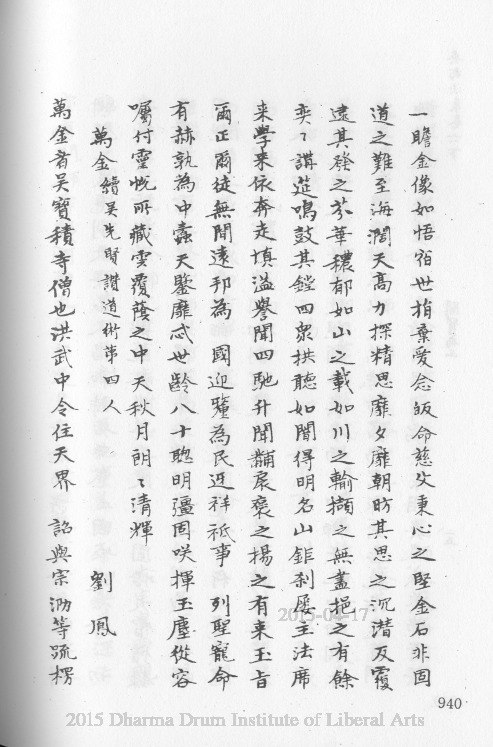 一瞻金像如悟宿世捐棄愛念皈命慈父秉心之堅金石非固
道之難至海濶天高力探精思靡夕靡朝昉其思之沉潜反覆
逮其發之芬華穠郁如山之載如川之輸擷之無盡挹之有餘
奕〻講筵鳴鼓其鏜四衆拱聽如闇得明名山鉅刹屡主法席
来學来依奔走填溢譽聞四馳升聞黼扆褒之揚之有来玉旨
爾正爾徒無閒遠邦為 國迎釐為民迓祥祇事 列聖寵命
有赫孰為中蠹天鑒靡忒世齡八十聰明彊固咲揮玉麈從容
囑付靈帨所藏雲覆蔭之中天秋月朗〻清輝
萬金續吳先賢讃道術第四人 劉鳳
萬金者吴寳積寺僧也洪武中令住天界 詔與宗泐等疏楞
940
2015-04-17
2015 Dharma Drum Institute of Liberal Arts